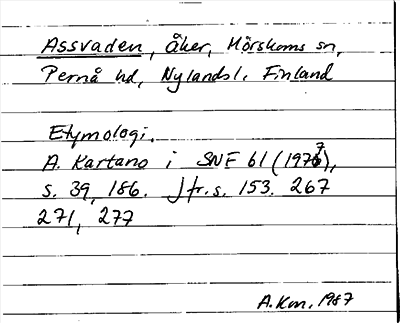 Assvaden, åker, Mörskoms sn,
Pernå hd, Nylands l. Finland
Etymologi.
A. Kartano i SNF 61 (1977),
s. 39, 186. Jfr. s. 153. 267
271, 277
A.Km. 1987